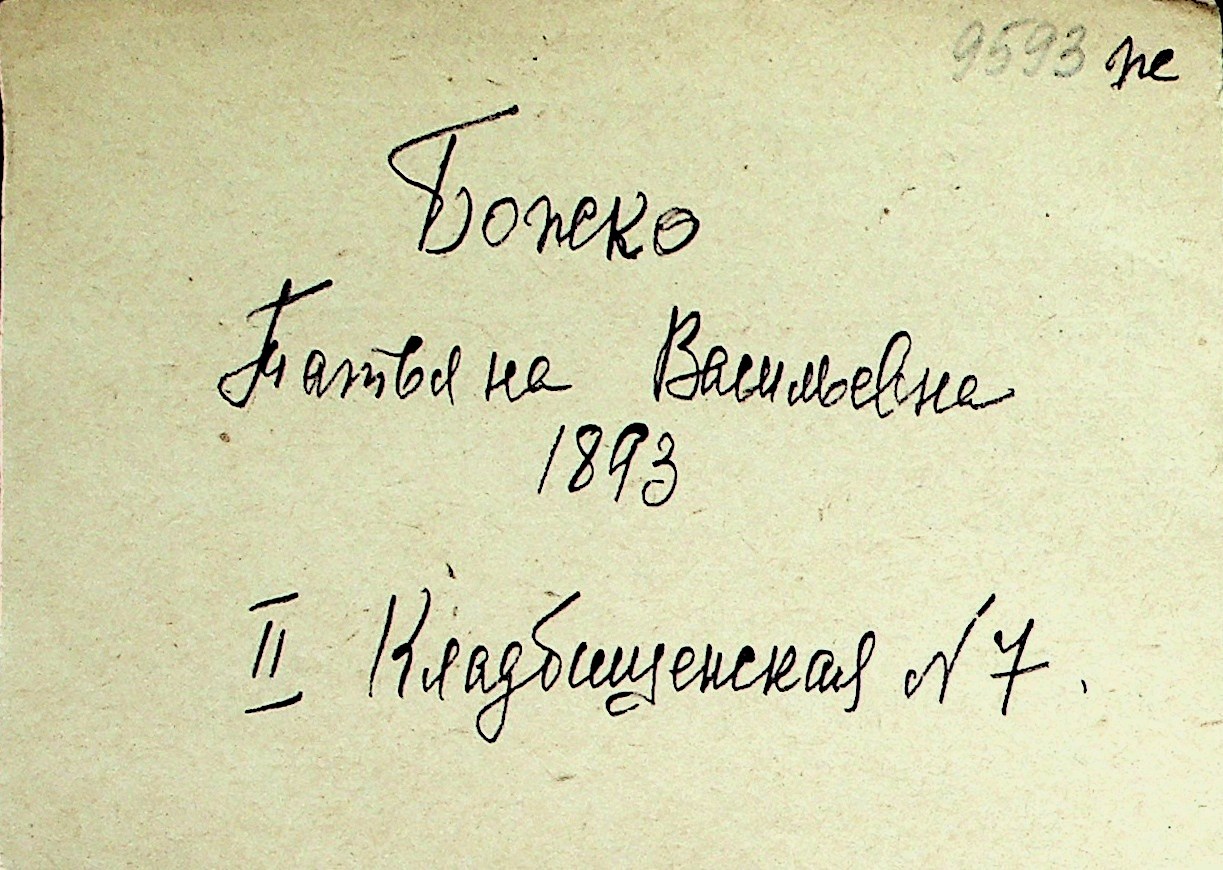 9593 ж
Божко
Татьяна Васильевна
1893
II Кладбищенская N 7.